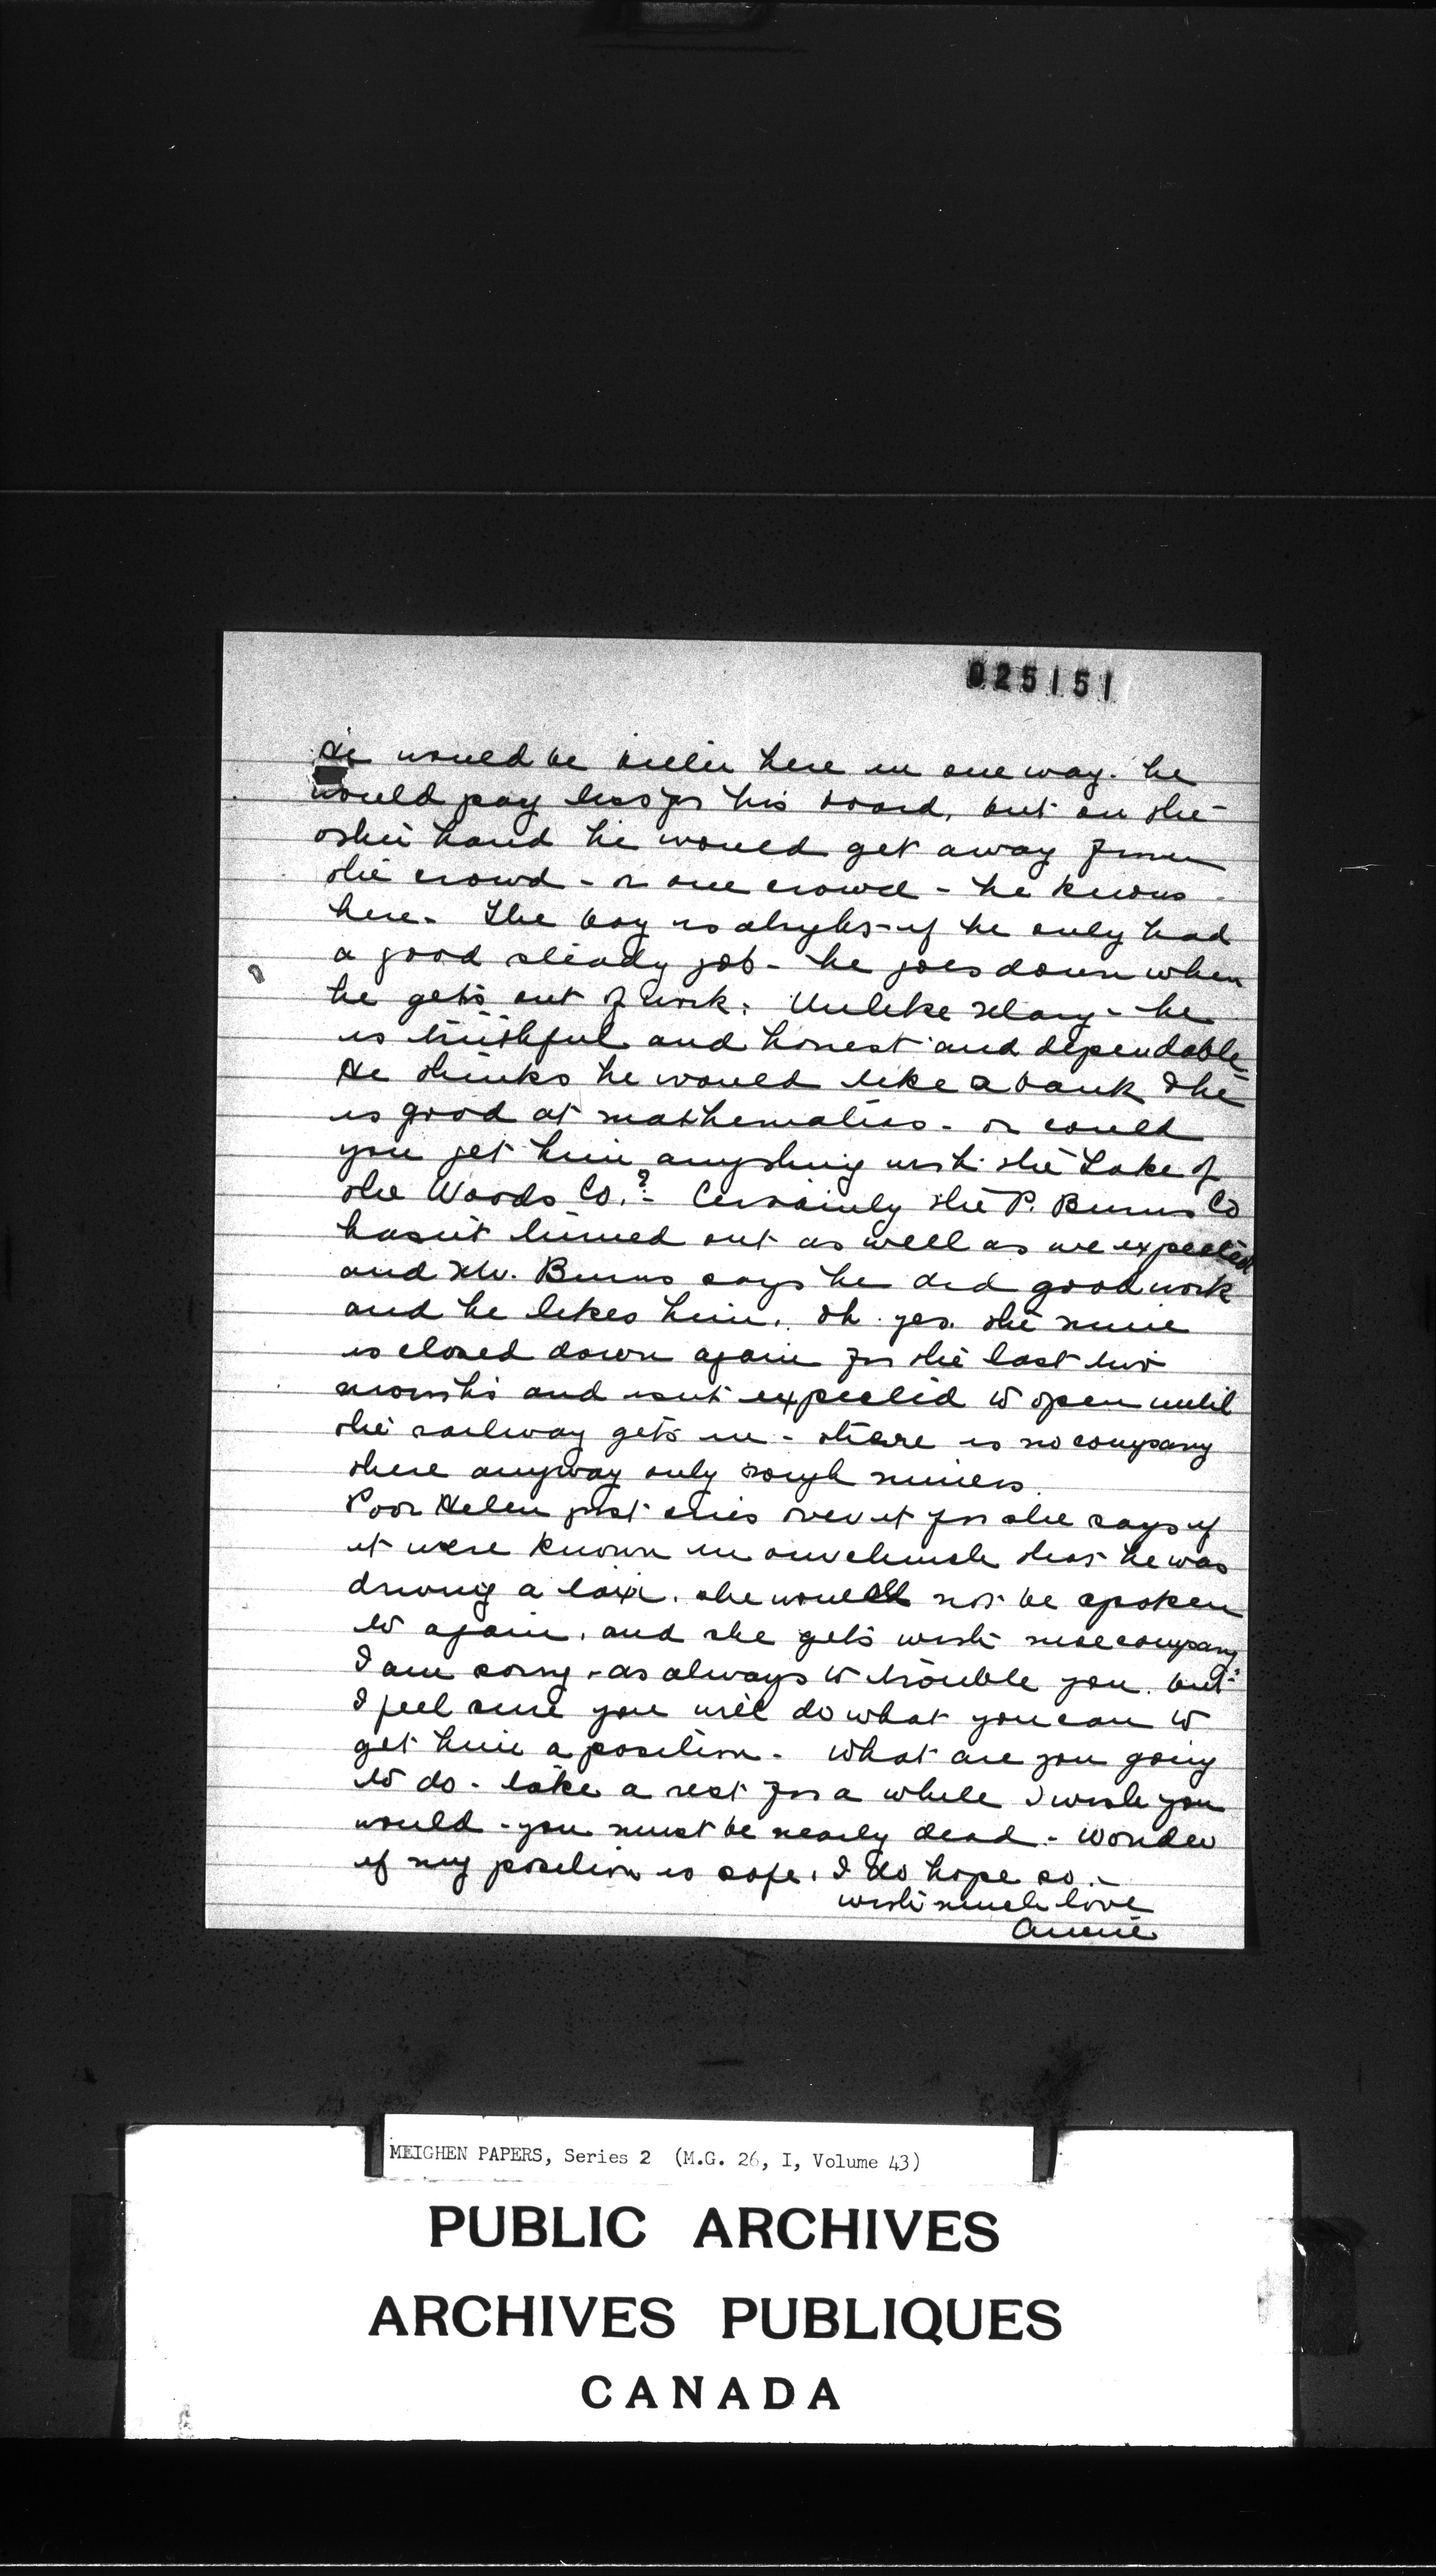 025151
He would be better here in one way. he
would pay less for his board, but on the
other hand he would get away from
the crowd - or one crowd - he knows
here. The boy is alright - if he only had
a good steady job - he goes down when
he gets out of work. Unlike Mary - he
is truthful and honest and dependable
He thinks he would like a bank & he
is good at mathematics - or could
you get him anything with the Lake of
the Woods Co.? - Certainly the P. Burns Co
hasn't turned out as well as we expected
and Mr. Burns says he did good work
and he likes him. Oh yes. the mine
is closed down again for the last two
months and isn't expected to open until
the railway gets in - there is no company
there anyway only rough miners.
Poor Helen just cries over it for she says if
it were known in our church that he was
driving a taxi. she would not be spoken
to again. and she gets with nice company
I am sorry - as always to trouble you. but
I feel sure you will do what you can to
get him a position. What are you going
to do - take a rest for a while I wish you
would - you must be nearly dead. - Wonder
if my position is safe. I do hope so. -
with much love
Annie
MEIGHEN PAPERS, Series 2 (M.G. 26, I, Volume 43)
PUBLIC ARCHIVES
ARCHIVES PUBLIQUES
CANADA